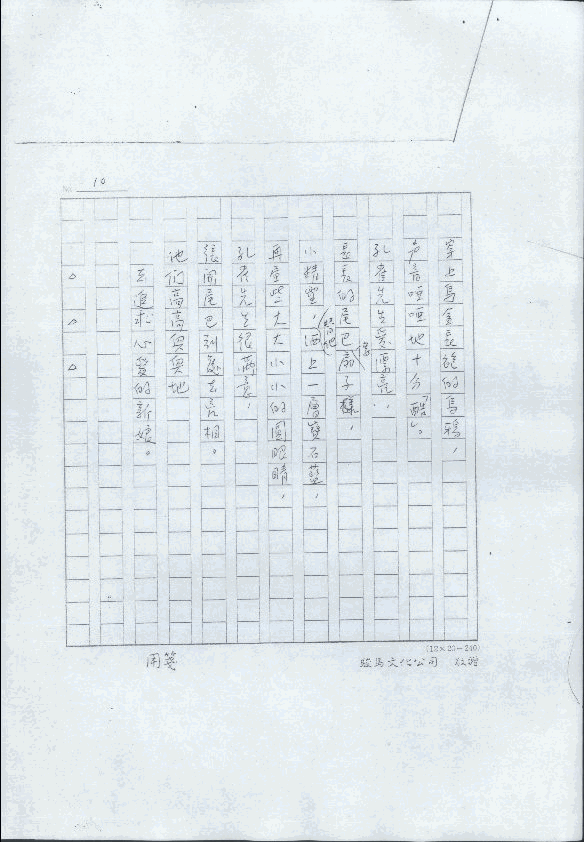 No. 10
穿上烏金長袍的烏鴉，
声音啞啞地十分「酷」。
孔雀先生愛漂亮，
長長的尾巴像扇子樣，
小精靈，替他洒上一層寶石藍，
再畫些大大小小的圓眼睛，
孔雀先生很滿意，
張開尾巴到處去亮相。
他們高高興興地
去追求心愛的新娘。
△ △ △
(12×20=240)
駿馬文化公司
用箋